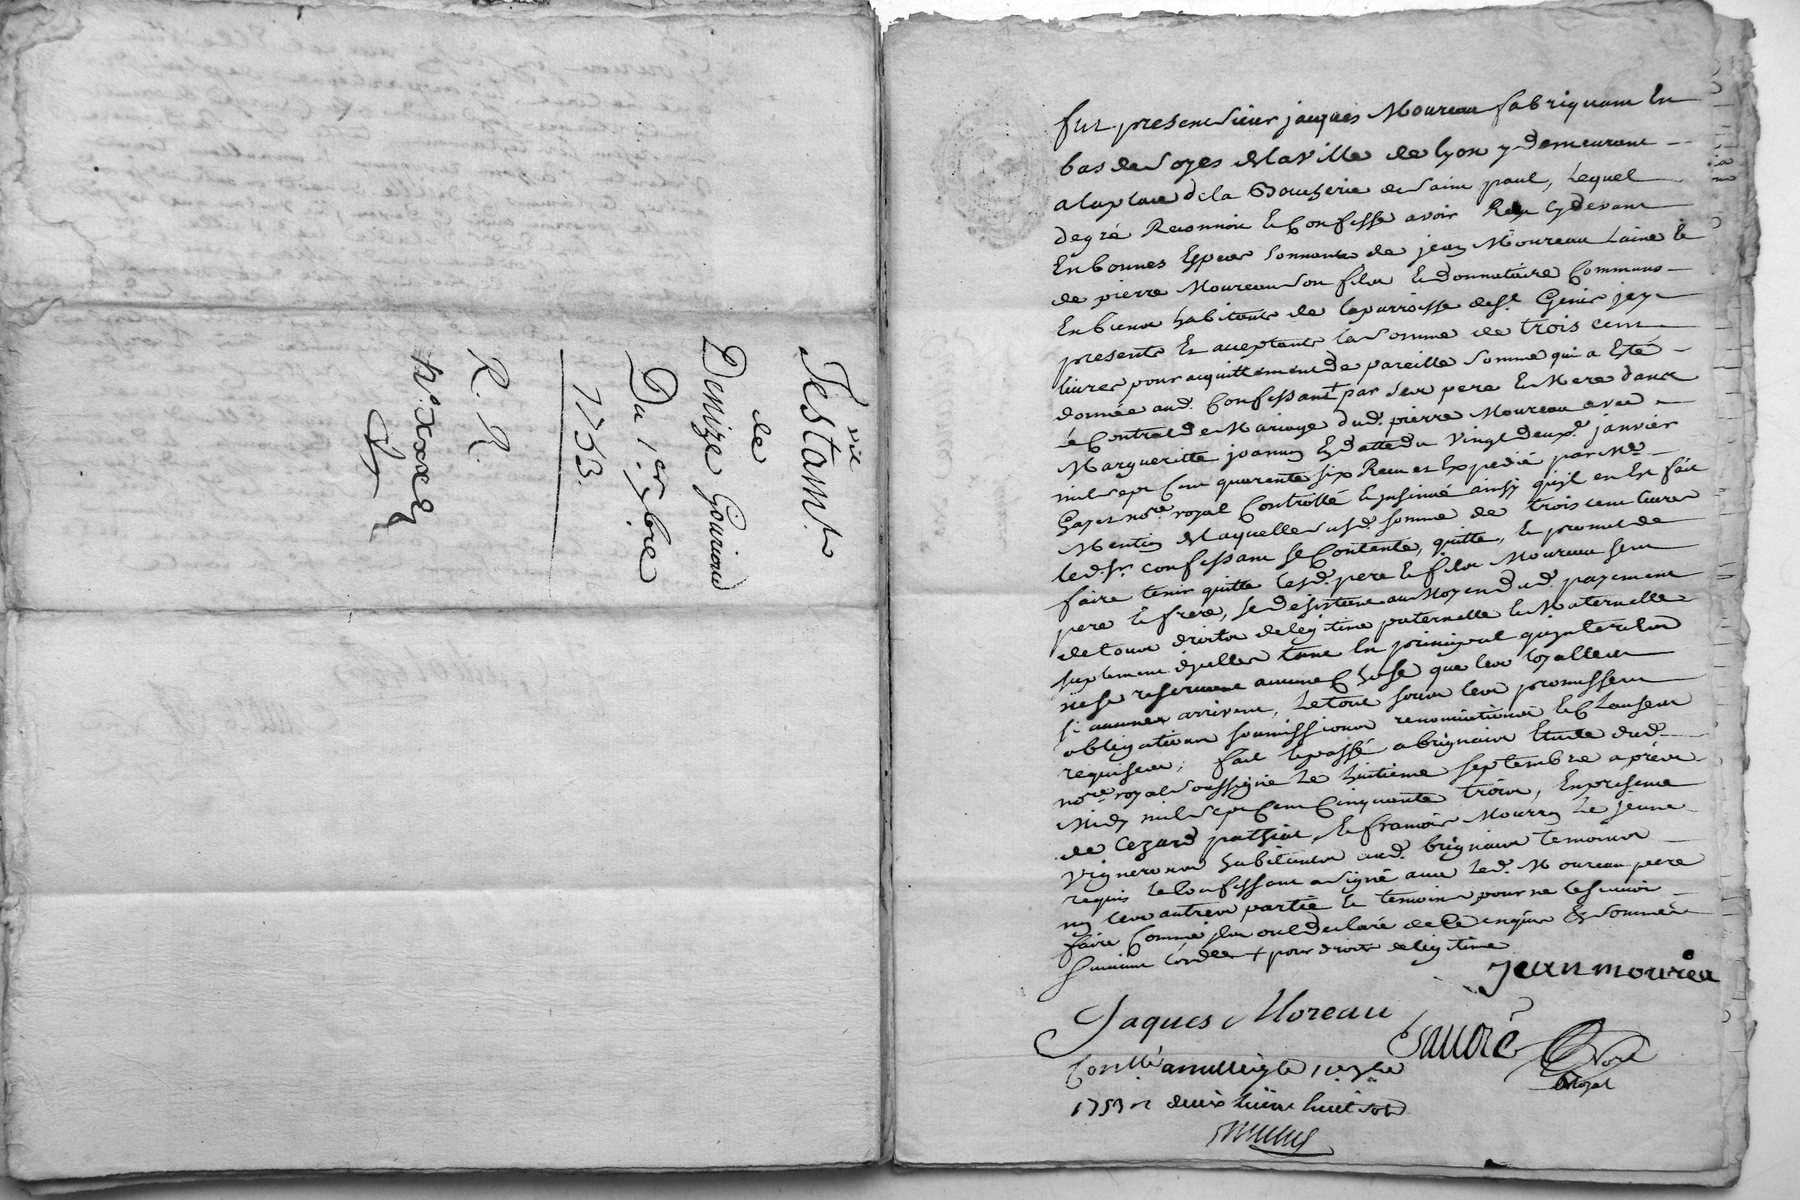 Testamt.
vit
de
Denize Gouriond
Du 1er. 7bre
1753.
R. R.
N.o xxx
fut present sieur jacques Moureau fabriquant En
bas de soyes de la Ville de lyon y demeurant
a la place de la Boucherie de saint paul, Lequel
de gré Reconnoit Et Confesse avoir Reçu cy devant
En bonnes Espèces sonnantes de jean Moureau Laine Et
de pierre Moureau son fils Et donnataire Communs
En biens habitants de la parroisse de st. Genis
presents Et acceptants la somme de trois cent
livres pour acquittement de pareille somme qui a Eté
donnée aud. Confessant + par ses pere Et Mere dans
le Contrat de Mariage dud. pierre Moureau avec
Margueritte joannin En datte du Vingt deuxe. janvier
mil sept Cent quarente six Receu et Expedié par Me.
Gayet nore. royal Controllé Et jnsinué ainsy qu'il en Est fait
Mention de laquelle susd. somme de trois cent livres
led. sr. confessant se Contente, quitte, Et promet de
faire tenir quitte lesd. pere Et fils Moureau ses
pere Et frere, se desistant au Moyen dud. payement
de tous droits de legitime paternelle Et Maternelle
suplement d'icelles tant En principal qu'interests
ne se reservant aucune Chose que les loyalles
si aucunes arrivent, Le tout sous les promesses
obligations soumissions renonciations Et Clauses
requises; fait Et passé a brignais Etude dud.
nore. royal soussigné Le huitieme septembre après
Midy mil sept Cent Cinquante trois, En presence
de Cezard pathiot, Et francois Mourron Le jeune
Vignerons habitants aud. brignais temoins
requis Le Confessant a signé avec Led. Moureau pere
ny les autres partie Et temoins pour ne le scavoir
faire Comme ils ont declaré de ce enquis Et sommés
suivant l'ordce + pour droits de legitime
jean moureau
Jaques Moreau
Gayet
nore
royal
Conllé a millery le 7bre
1753 r. deux livres huit sols